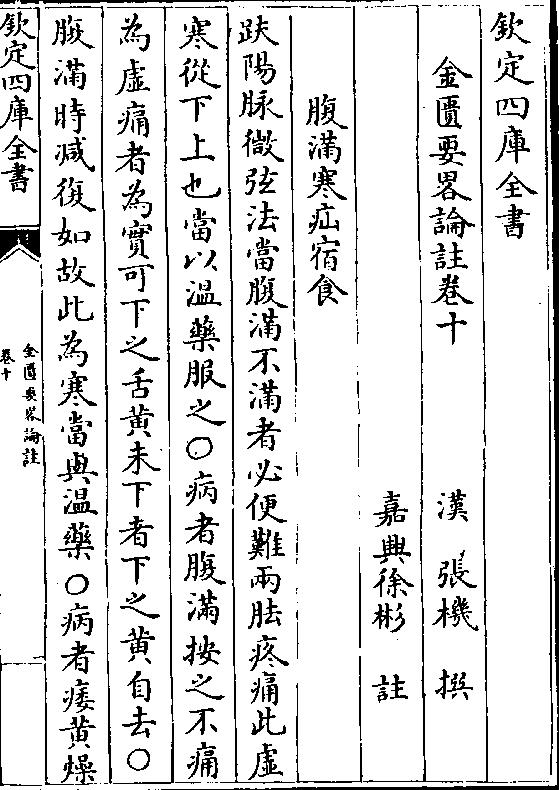 欽定四庫全書
金匱要畧論註卷十
漢 張機 撰
嘉興徐彬 註
腹滿寒疝宿食
趺陽脉微弦法當腹滿不滿者必便難兩胠疼痛此虛
寒從下上也當以温藥服之○病者腹滿按之不痛
為虛痛者為實可下之舌黄未下者下之黄自去○
腹滿時減復如故此為寒當與温藥○病者痿黄燥
欽定四庫全書
金匱要畧論註
卷十